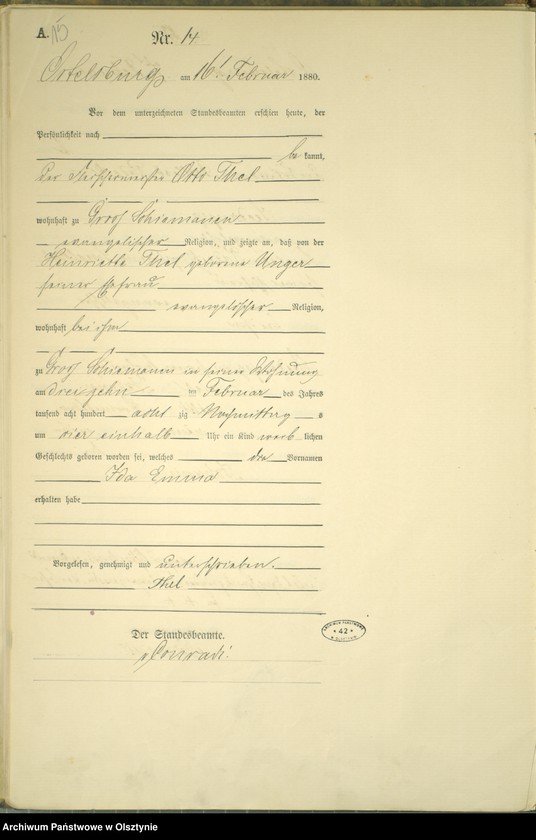 A. 15
Nr. 14
Ortelsburg am 16t Februar 1880.
Vor dem unterzeichneten Standesbeamten erschien heute, der
Persönlichkeit nach
be kannt,
der Otto Thel
wohnhaft zu Groß Schiemanen
evangelischer Religion, und zeigte an, daß von der
Heinriette Thel geborene Unger
seiner Ehefrau
evangelischer Religion,
wohnhaft bei ihm
zu Groß Schiemanen in seiner Wohnung
am dreizehn ten Februar des Jahres
tausend acht hundert acht zig Nachmittag s
um vier einhalb Uhr ein Kind weib lichen
Geschlechts geboren worden sei, welches die Vornamen
Ida Emma
erhalten habe
Vorgelesen, genehmigt und unterschrieben.
Thel
Der Standesbeamte.
Conradi.
ARCHIWUM PAŃSTWOWE
* 42 *
W OLSZTYNIE
Archiwum Państwowe w Olsztynie